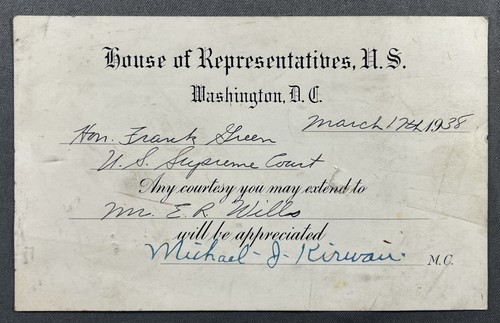 House of Representatives, U.S.
Washington, D.C.
March 17th 1938
Hon. Frank Green
U.S. Supreme Court
Any courtesy you may extend to
Mr. E.R. Wills
will be appreciated
Michael J. Kirwan M.C.